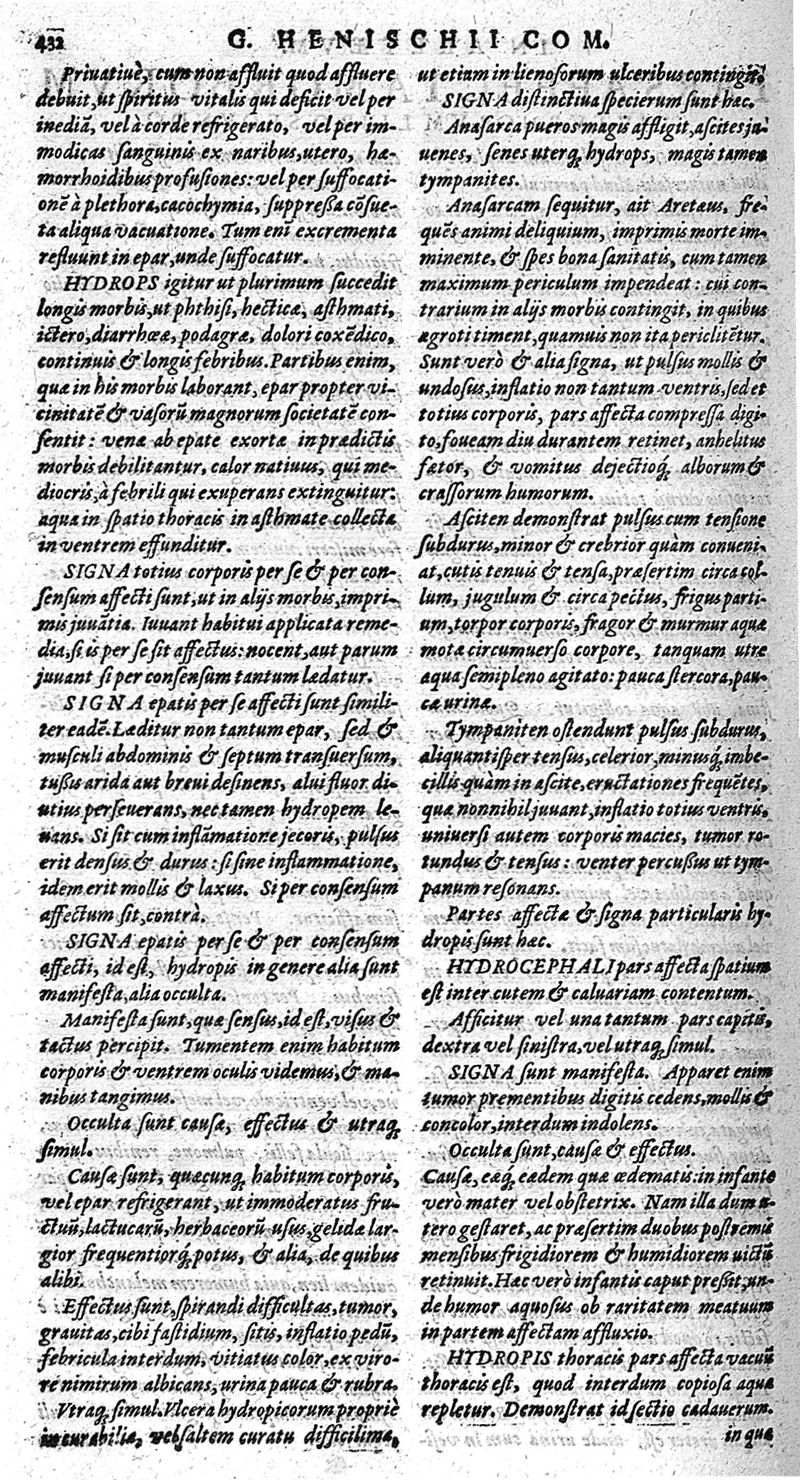 432
G. HENISCHII COM.
Priuatiuè, cum non affluit quod affluere
debuit, ut ſpiritus vitalis qui deficit vel per
inediã, vel à corde refrigerato, vel per im-
modicas ſanguinis ex naribus, utero, hæ-
morrhoidibus profuſiones: vel per ſuffocati-
onẽ à plethora, cacochymia, ſuppreßa cõſue-
ta aliqua vacuatione. Tum enĩ excrementa
refluunt in epar, unde ſuffocatur.
HYDROPS igitur ut plurimum ſuccedit
longis morbis, ut phthiſi, hecticæ, aſthmati,
ictero, diarrhœæ, podagræ, dolori coxẽdico,
continuis & longis febribus. Partibus enim,
quæ in his morbis laborant, epar propter vi-
cinitatẽ & vaſorũ magnorum ſocietatẽ con-
ſentit: venæ ab epate exortæ in prædictis
morbis debilitantur, calor natiuus, qui me-
diocris, à febrili qui exuperans extinguitur:
aqua in ſpatio thoracis in aſthmate collecta
in ventrem effunditur.
SIGNA totius corporis per ſe & per con-
ſenſum affecti ſunt, ut in alijs morbis, impri-
mis juvãtia. Iuuant habitui applicata reme-
dia, ſi is per ſe ſit affectus: nocent, aut parum
juvant ſi per conſenſum tantum lædatur.
SIGNA epatis per ſe affecti ſunt ſimili-
ter eadẽ. Læditur non tantum epar, ſed &
muſculi abdominis & ſeptum transuerſum,
tußis arida aut breui deſinens, alui fluor di-
utius perſeuerans, nec tamen hydropem le-
uans. Si ſit cum inflãmatione jecoris, pulſus
erit denſus & durus: ſi ſine inflammatione,
idem erit mollis & laxus. Si per conſenſum
affectum ſit, contrà.
SIGNA epatis per ſe & per conſenſum
affecti, id eſt, hydropis in genere alia ſunt
manifeſta, alia occulta.
Manifeſta ſunt, quæ ſenſus, id eſt, viſus &
tactus percipit. Tumentem enim habitum
corporis & ventrem oculis videmus, & ma-
nibus tangimus.
Occulta ſunt cauſæ, effectus & utraq́;
ſimul.
Cauſæ ſunt, quæcunq; habitum corporis,
vel epar refrigerant, ut immoderatus fru-
ctuũ, lactucarũ, herbaceorũ uſus, gelidæ lar-
gior frequentiorq́; potus, & alia, de quibus
alibi.
Effectus ſunt, ſpirandi difficultas, tumor,
grauitas, cibi faſtidium, ſitis, inflatio pedũ,
febricula interdum, vitiatus color, ex viro-
re nimirum albicans, urina pauca & rubra.
Vtraq; ſimul. Vlcera hydropicorum propriè
incurabilia, vel ſaltem curatu difficilima,
ut etiam in lienoſorum ulceribus contingit.
SIGNA diſtinctiua ſpecierum ſunt hæc.
Anaſarca pueros magis affligit, aſcites ju-
uenes, ſenes uterq; hydrops, magis tamen
tympanites.
Anaſarcam ſequitur, ait Aretæus, fre-
quẽs animi deliquium, imprimis morte im-
minente, & ſpes bona ſanitatis, cum tamen
maximum periculum impendeat: cui con-
trarium in alijs morbis contingit, in quibus
ægroti timent, quamuis non ita periclitẽtur.
Sunt verò & alia ſigna, ut pulſus mollis &
undoſus, inflatio non tantum ventris, ſed et
totius corporis, pars affecta compreſſa digi-
to, foueam diu durantem retinet, anhelitus
fœtor, & vomitus dejectioq́; alborum &
craſſorum humorum.
Aſciten demonſtrat pulſus cum tenſione
ſubdurus, minor & crebrior quàm conueni-
at, cutis tenuis & tenſa, præſertim circa col-
lum, jugulum & circa pectus, frigus parti-
um, torpor corporis, fragor & murmur aquæ
motæ circumuerſo corpore, tanquam utre
aqua ſemipleno agitato: pauca ſtercora, pau-
cæ urinæ.
Tympaniten oſtendunt pulſus ſubdurus,
aliquantiſper tenſus, celerior, minusq́; imbe-
cillis quàm in aſcite, eructationes frequẽtes,
quæ nonnihil juvant, inflatio totius ventris,
univerſi autem corporis macies, tumor ro-
tundus & tenſus: venter percußus ut tym-
panum reſonans.
Partes affectæ & ſigna particularis hy-
dropis ſunt hæc.
HYDROCEPHALI pars affecta ſpatium
eſt inter cutem & caluariam contentum.
Afficitur vel una tantum pars capitis,
dextra vel ſiniſtra, vel utraq; ſimul.
SIGNA ſunt manifeſta. Apparet enim
tumor prementibus digitis cedens, mollis &
concolor, interdum indolens.
Occulta ſunt, cauſæ & effectus.
Cauſæ, eæq́; eædem quæ œdematis: in infante
verò mater vel obſtetrix. Nam illa dum u-
tero geſtaret, ac præſertim duobus poſtremis
menſibus frigidiorem & humidiorem uictũ
retinuit. Hæc verò infantis caput preßit, un-
de humor aquoſus ob raritatem meatuum
in partem affectam affluxio.
HYDROPIS thoracis pars affecta vacuũ
thoracis eſt, quod interdum copioſa aqua
repletur. Demonſtrat id ſectio cadauerum.
in qua